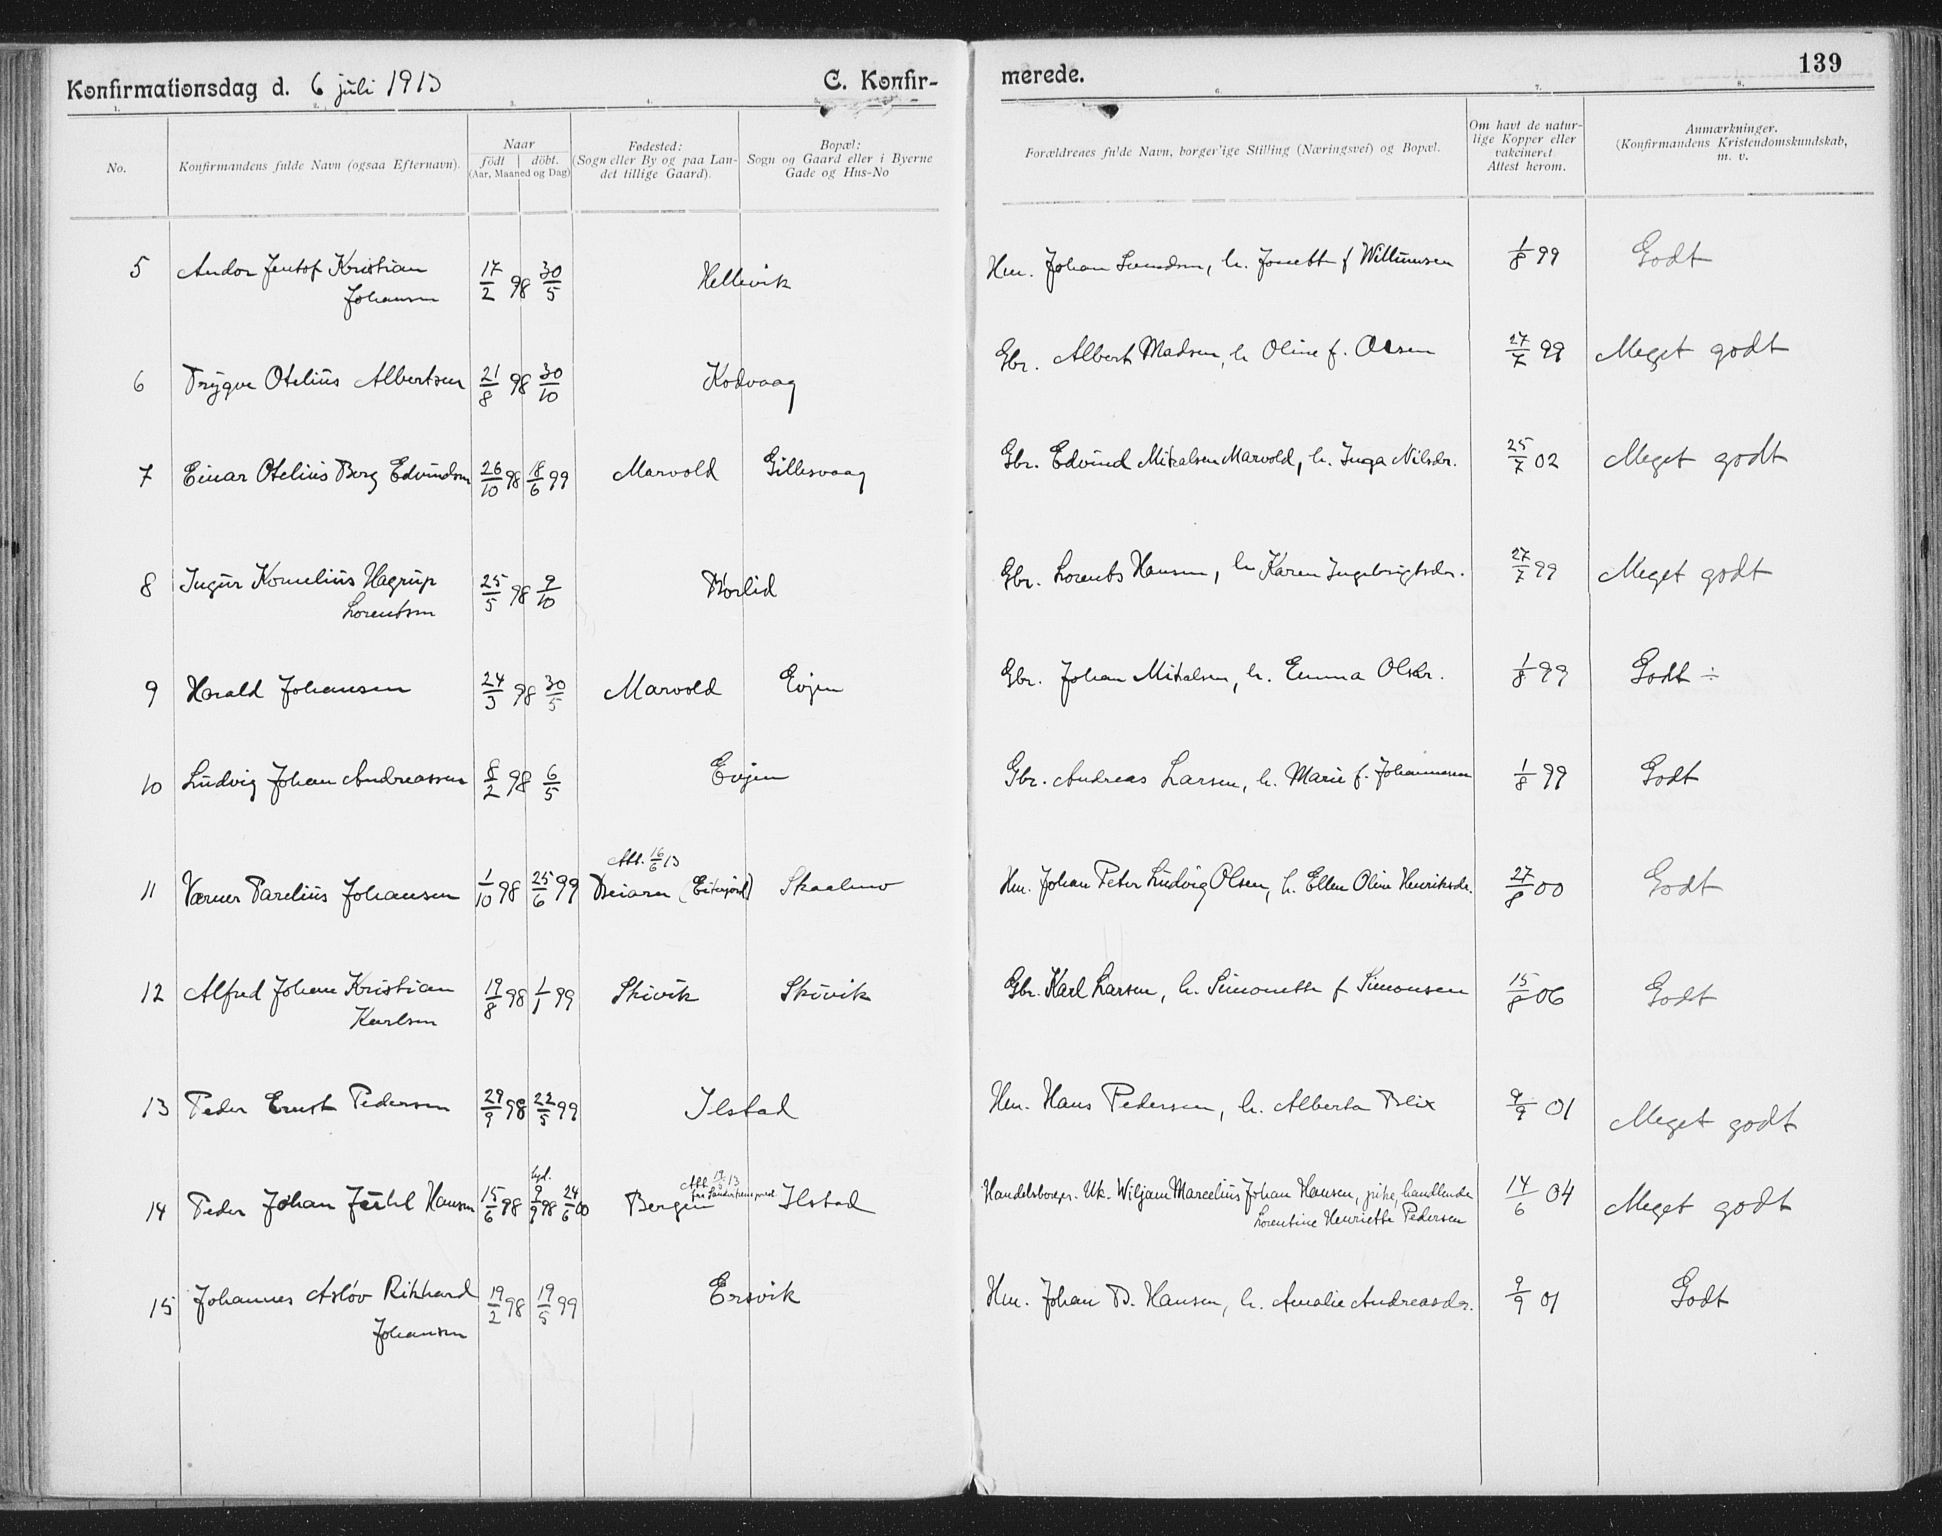 Konfirmationsdag d. 6 juli 1913 C. Konfir-
merede. 139
1. 2. 3. 4. 6. 7. 8.
No.
Konfirmandens fulde Navn (ogsaa Efternavn).
Naar
födt döbt.
(Aar, Maaned og Dag)
Fødested:
(Sogn eller By og paa Lan-
det tillige Gaard).
Bopæl:
Sogn og Gaard eller i Byerne
Gade og Hus-No
Forældrenes fulde Navn, borgerlige Stilling (Næringsvei) og Bopæl.
Om havt de natur-
lige Kopper eller
vakcineret
Attest herom.
Anmærkninger.
(Konfirmandens Kristendomskundskab,
m. v.
5 Andor Jentof Kristian
Johansen
17/2 98 30/5 Hellevik Hm. Johan, h. f Willumsen 1/8 99 Godt
6 Trygve Otelius Albertsen 21/8 98 30/10 Kodvaag Gbr. Albert Madsen, h Oline f. Olsen 27/7 99 Meget godt
7 Einar Otelius Berg Edvindsen 26/10 98 18/6 99 Marvold Gillesvaag Gbr. Edvind Mikalsen Marvold, h. Inga Nilsdr. 25/7 02 Meget godt
8 Kornelius Hagrup
Lorentsen
25/5 98 9/10 Gbr. Lorents Hansen, h Karen Ingebrigtsdr. 27/7 99 Meget godt
9 Harald Johansen 24/3 98 30/5 Marvold Evjen Gbr. Johan Mikalsen, h. Emma Olsdr. 1/8 99 Godt ÷
10 Ludvig Johan Andreassen 8/2 98 6/5 Evjen Gbr. Andreas Larsen, h. Marie f. Johannesen 1/8 99 Godt
Att. 16/6 13
11 Værner Parelius Johansen 1/10 98 25/6 99 Beiarn (Eiterjord) Skaalmo Hm. Johan Peter Ludvig Olsen, h. Ellen Oline Henriksdr. 27/8 00 Godt
12 Alfred Johan Kristian
Karlsen
19/8 98 1/1 99 Skivik Skivik Gbr. Karl Larsen, h. Simonette f Simonsen 15/8 06 Godt
13 Peder Ernst Pedersen 29/9 98 22/5 99 Ilstad Hm. Hans Pedersen, h. Alberta Blix 9/9 01 Meget godt
14 Peder Johan Juhl Hansen 15/6 98 9/9 98 24/6 00 Bergen Ilstad Handelsborger. Uk. Wiljam Marcelius Johan Hansen, pike, handlende
Lorentine Henriette Pedersen
14/6 04 Meget godt
15 Johannes Asløv Rikhard
Johansen
19/2 98 19/5 99 Ersvik Hm. Johan B. Hansen, h. Amalie Andreasdr. 9/9 01 Godt